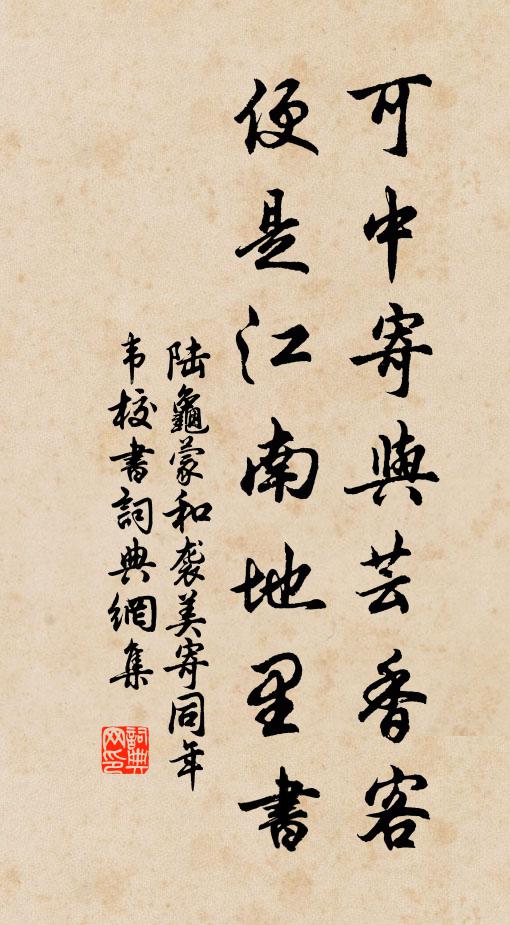 可中寄與芸香客
便是江南地里書
陆龜蒙和袭美寄同年
韦校書詞典網集
詞典网印